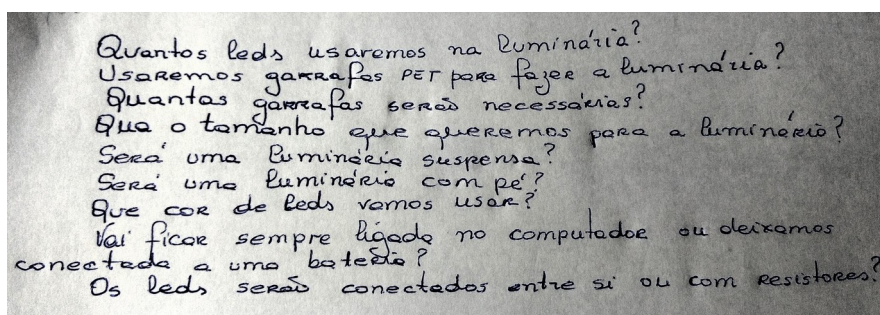 Quantos leds usaremos na luminária?
Usaremos garrafas PET para fazer a luminária?
Quantas garrafas serão necessárias?
Qua o tamanho que queremos para a luminária?
Será uma luminária suspensa?
Será uma luminária com pé?
Que cor de leds vamos usar?
Vai ficar sempre ligada no computador ou deixamos
conectada a uma bateria?
Os leds serão conectados entre si ou com resistores?